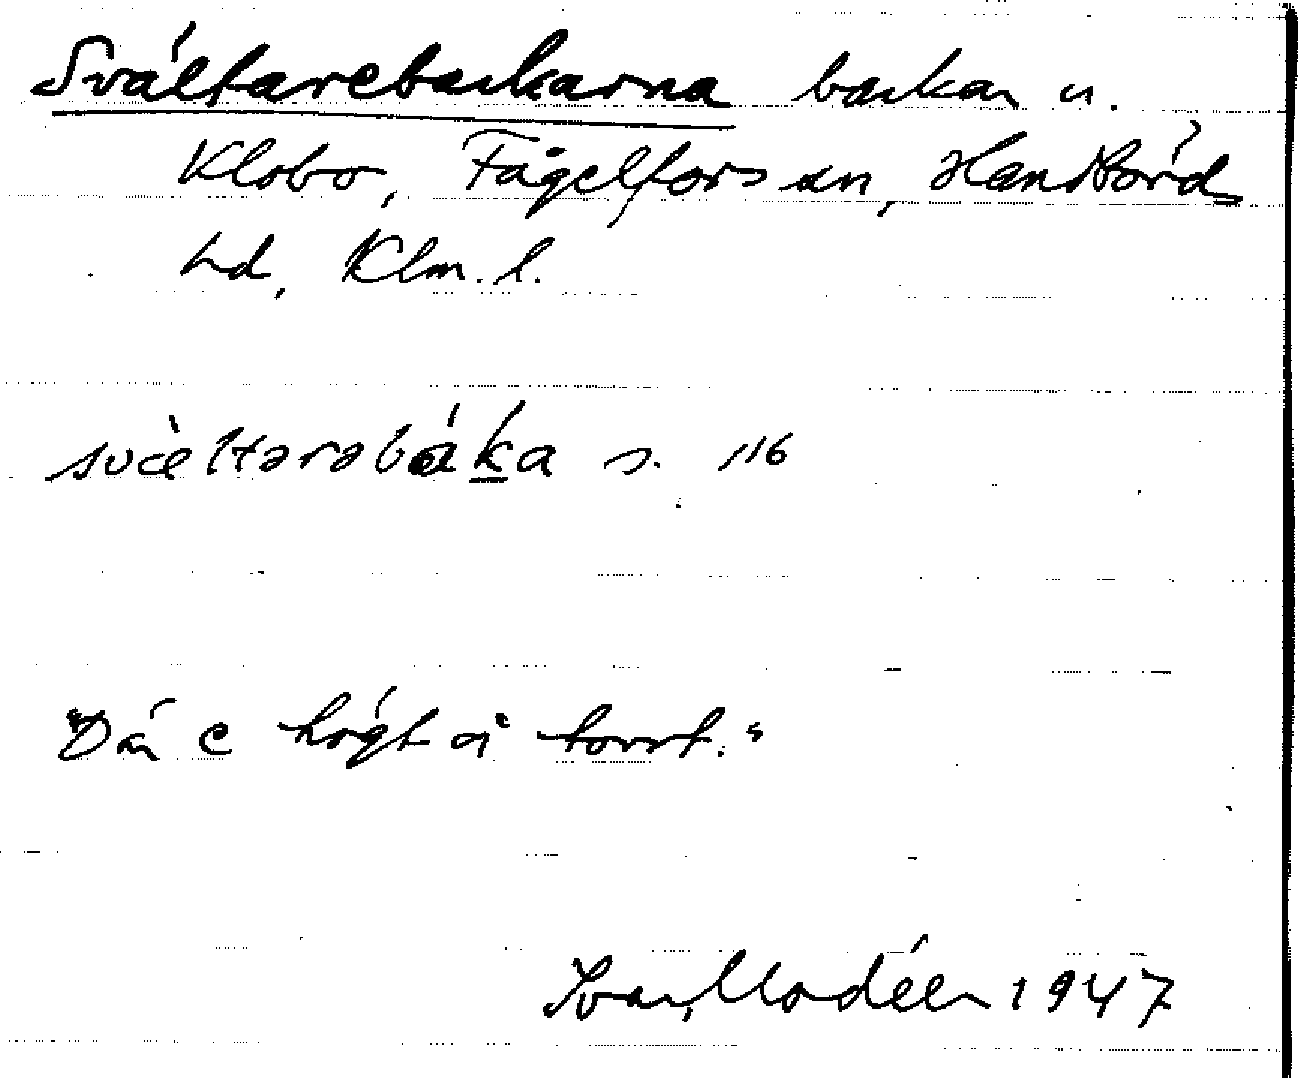 Svältarebackarna backar u.
Klobo, Fågelfors sn, Handbörds
hd, Klm. l.
svèltarabáka s. 116
"Dä e högt å tort."
Ivar Modéer 1947